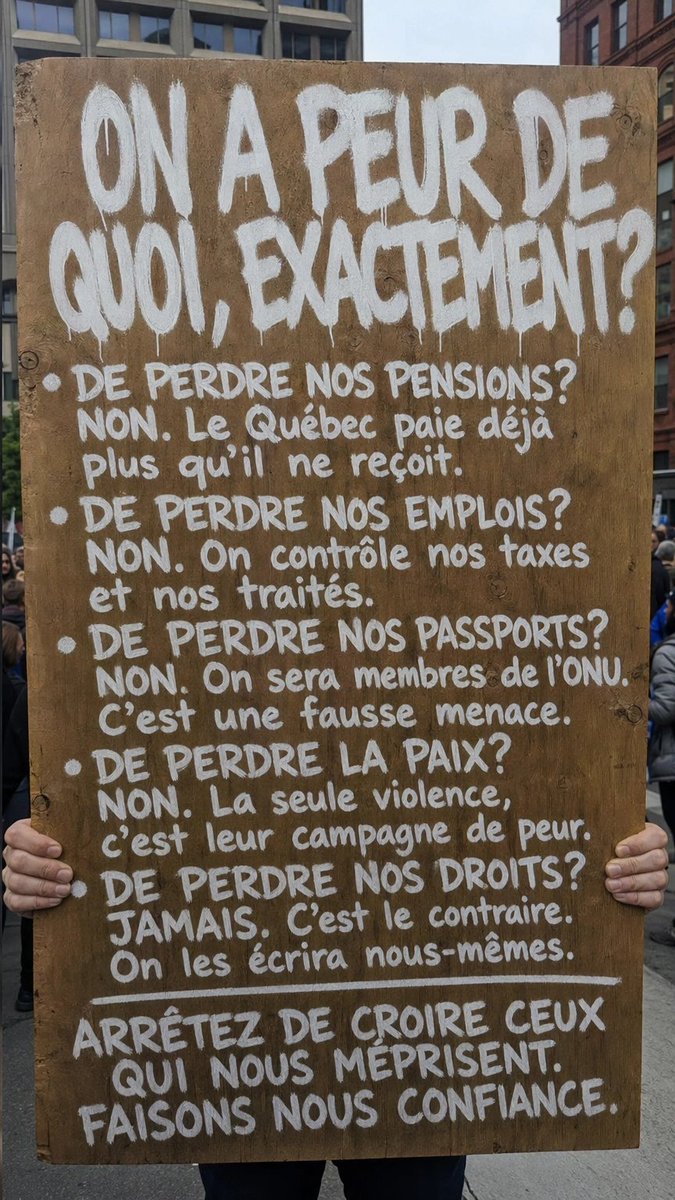 ON A PEUR DE
QUOI, EXACTEMENT?
• DE PERDRE NOS PENSIONS?
NON. Le Québec paie déjà
plus qu'il ne reçoit.
• DE PERDRE NOS EMPLOIS?
NON. On contrôle nos taxes
et nos traités.
• DE PERDRE NOS PASSPORTS?
NON. On sera membres de l'ONU.
C'est une fausse menace.
• DE PERDRE LA PAIX?
NON. La seule violence,
c'est leur campagne de peur.
• DE PERDRE NOS DROITS?
JAMAIS. C'est le contraire.
On les écrira nous-mêmes.
ARRÊTEZ DE CROIRE CEUX
QUI NOUS MÉPRISENT.
FAISONS NOUS CONFIANCE.